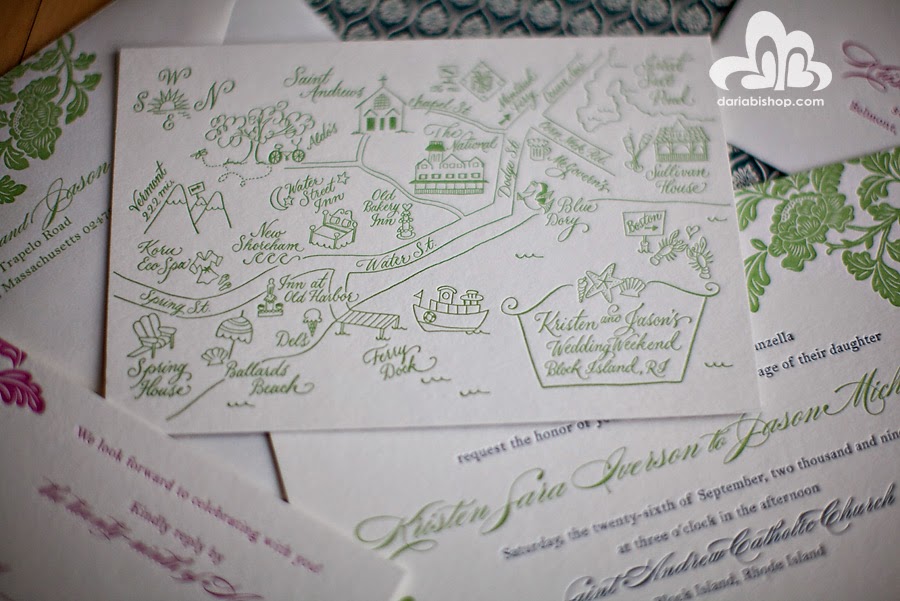 dariabishop.com
W
S
N
E
Saint
Andrews
Aldo's
Chapel St.
The
National
Dodge St.
McGovern's
Sullivan
House
Vermont
232 mi.
Water
Street
Inn
Old
Bakery
Inn
Blue
Dory
Boston
New
Shoreham
Koru
Eco Spa
Water St.
Spring St
Inn at
Old Harbor
Spring
House
Del's
Ballards
Beach
Ferry
Dock
Kristen and Jason's
Wedding Weekend
Block Island, RI
and Jason
Trapelo Road
Massachusetts 0247
Belmont,
We look forward to celebrating with you!
Kindly reply by
nzella
age of their daughter
request the honor of
Kristen Sara Iverson to Jason Mich
Saturday, the twenty-sixth of September, two thousand and nine
at three o'clock in the afternoon
Saint Andrew Catholic Church
Block Island, Rhode Island